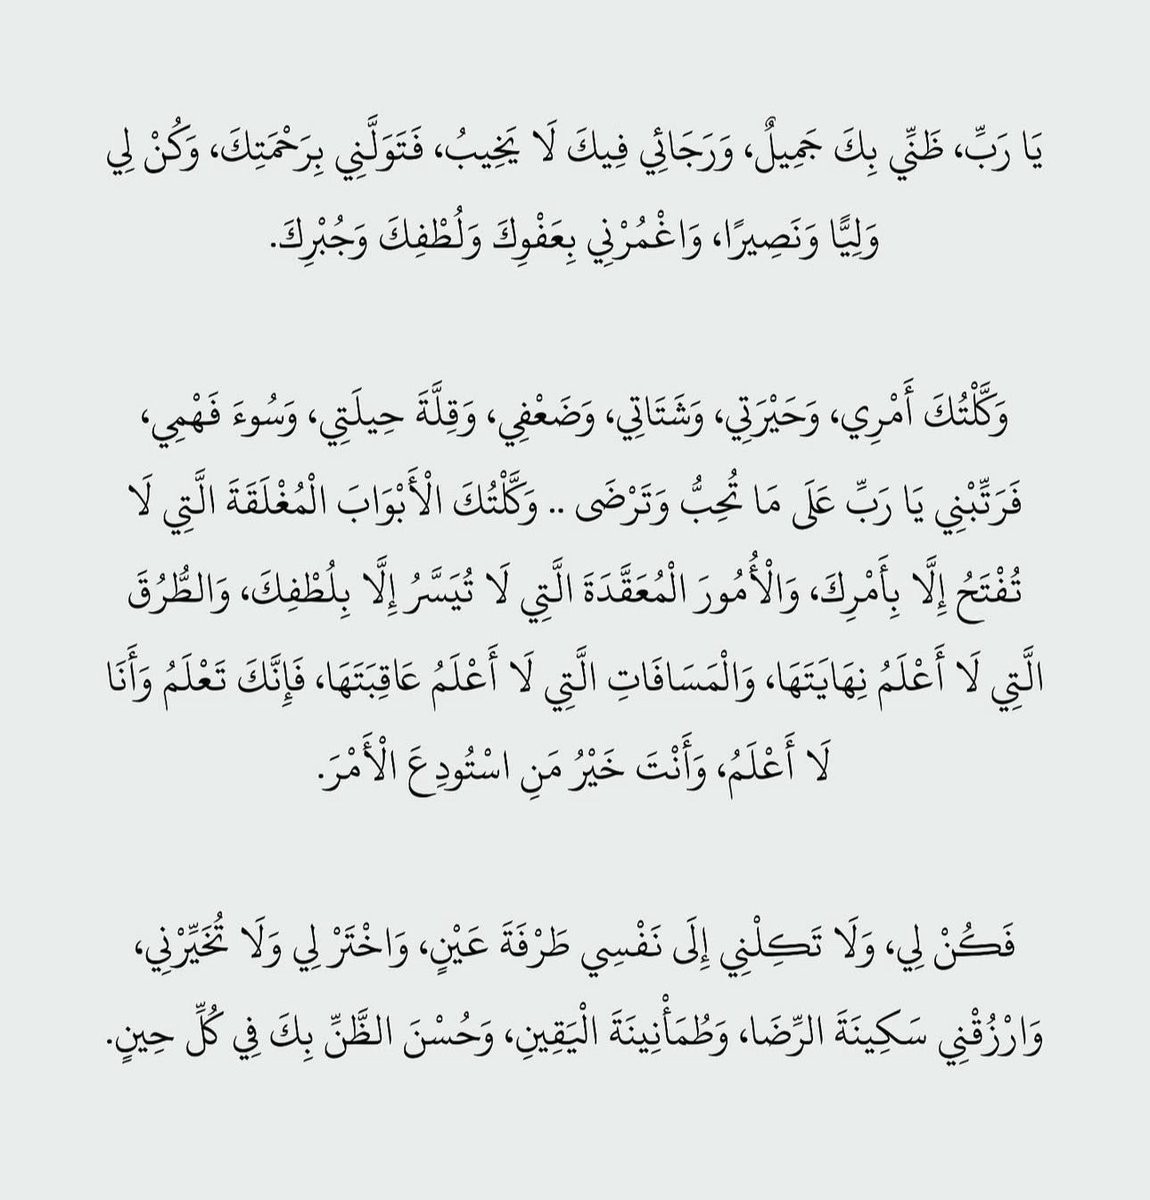 يَا رَبِّ، ظَنِّي بِكَ جَمِيلٌ، وَرَجَائِي فِيكَ لَا يَخِيبُ، فَتَوَلَّنِي بِرَحْمَتِكَ، وَكُنْ لِي
وَلِيًّا وَنَصِيرًا، وَاغْمُرْنِي بِعَفْوِكَ وَلُطْفِكَ وَجُبْرِكَ.
وَكَّلْتُكَ أَمْرِي، وَحَيْرَتِي، وَشَتَاتِي، وَضَعْفِي، وَقِلَّةَ حِيلَتِي، وَسُوءَ فَهْمِي،
فَرَتِّبْنِي يَا رَبِّ عَلَى مَا تُحِبُّ وَتَرْضَى .. وَكَّلْتُكَ الْأَبْوَابَ الْمُغْلَقَةَ الَّتِي لَا
تُفْتَحُ إِلَّا بِأَمْرِكَ، وَالْأُمُورَ الْمُعَقَّدَةَ الَّتِي لَا تُيَسَّرُ إِلَّا بِلُطْفِكَ، وَالطُّرُقَ
الَّتِي لَا أَعْلَمُ نِهَايَتَهَا، وَالْمَسَافَاتِ الَّتِي لَا أَعْلَمُ عَاقِبَتَهَا، فَإِنَّكَ تَعْلَمُ وَأَنَا
لَا أَعْلَمُ، وَأَنْتَ خَيْرُ مَنِ اسْتُودِعَ الْأَمْرَ.
فَكُنْ لِي، وَلَا تَكِلْنِي إِلَى نَفْسِي طَرْفَةَ عَيْنٍ، وَاخْتَرْ لِي وَلَا تُخَيِّرْنِي،
وَارْزُقْنِي سَكِينَةَ الرِّضَا، وَطُمَأْنِينَةَ الْيَقِينِ، وَحُسْنَ الظَّنِّ بِكَ فِي كُلِّ حِينٍ.